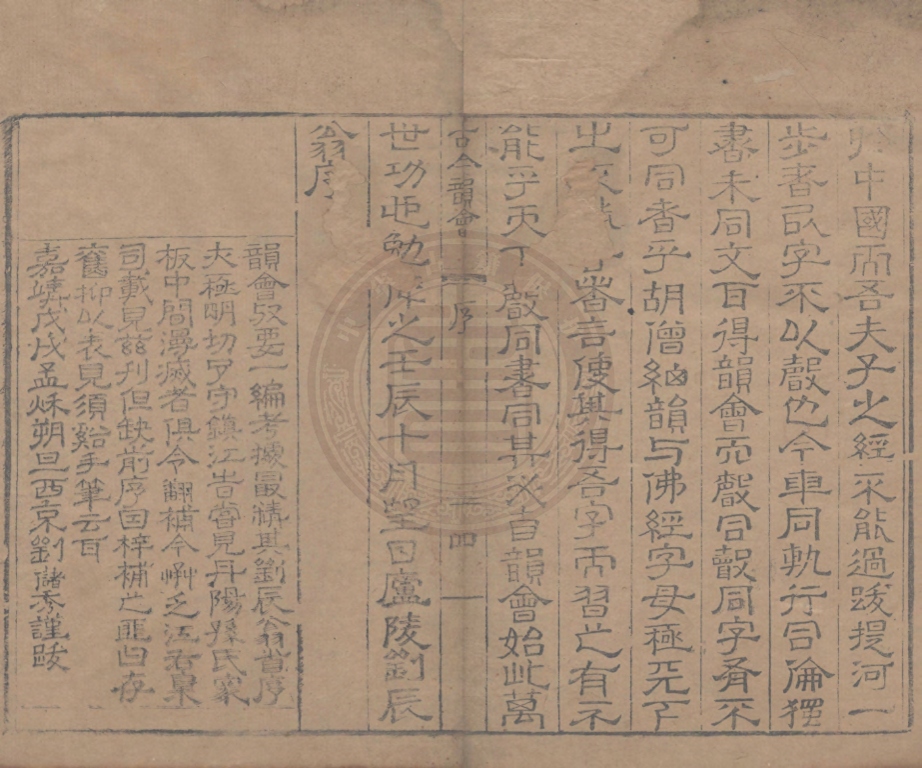 中國而吾夫子之經不能過跋提河一
步者以字不以聲也今車同軌行同倫獨
書未同文自得韻會而聲同聲同字有不
可同者乎胡僧䌷韻与佛經字母極无下
出審音使其得吾字而習之有不
能乎天下聲同書同其必自韻會始此萬
古今韻會 序 一
世功也勉成之壬辰十月望日廬陵劉辰
翁序
韻會舉要一編考據最精其劉辰翁首序
尤極明切予守鎮江旹嘗見丹陽孫氏家
板中間漫滅者俱令翻補今承乏江右臬
司載見茲刋但缺前序因梓補之匪曰存
舊抑以表見須谿手筆云耳
嘉靖戊戌孟秌朔旦西京劉儲秀謹跋